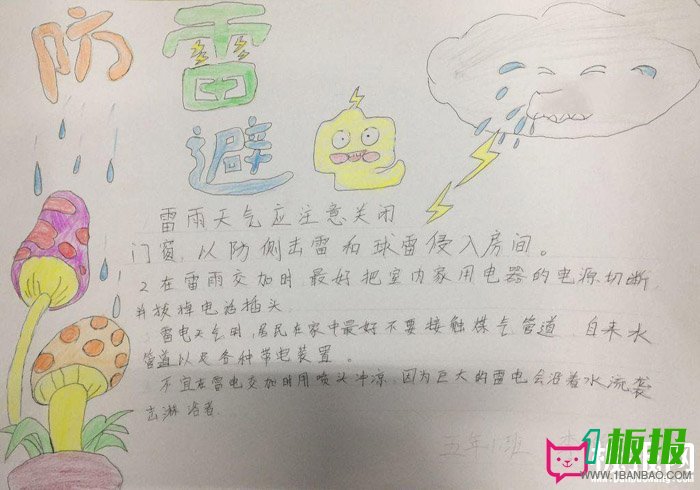 防雷
避电
雷雨天气应注意关闭
门窗，以防侧击雷和球雷侵入房间。
2 在雷雨交加时，最好把室内家用电器的电源切断
并拔掉电话插头
雷电天气时，居民在家中最好不要接触煤气管道、自来水
管道以及各种带电装置。
不宜在雷电交加时用喷头冲凉，因为巨大的雷电会沿着水流袭
击淋浴者
五年1班
1板报
WWW.1BANBAO.COM